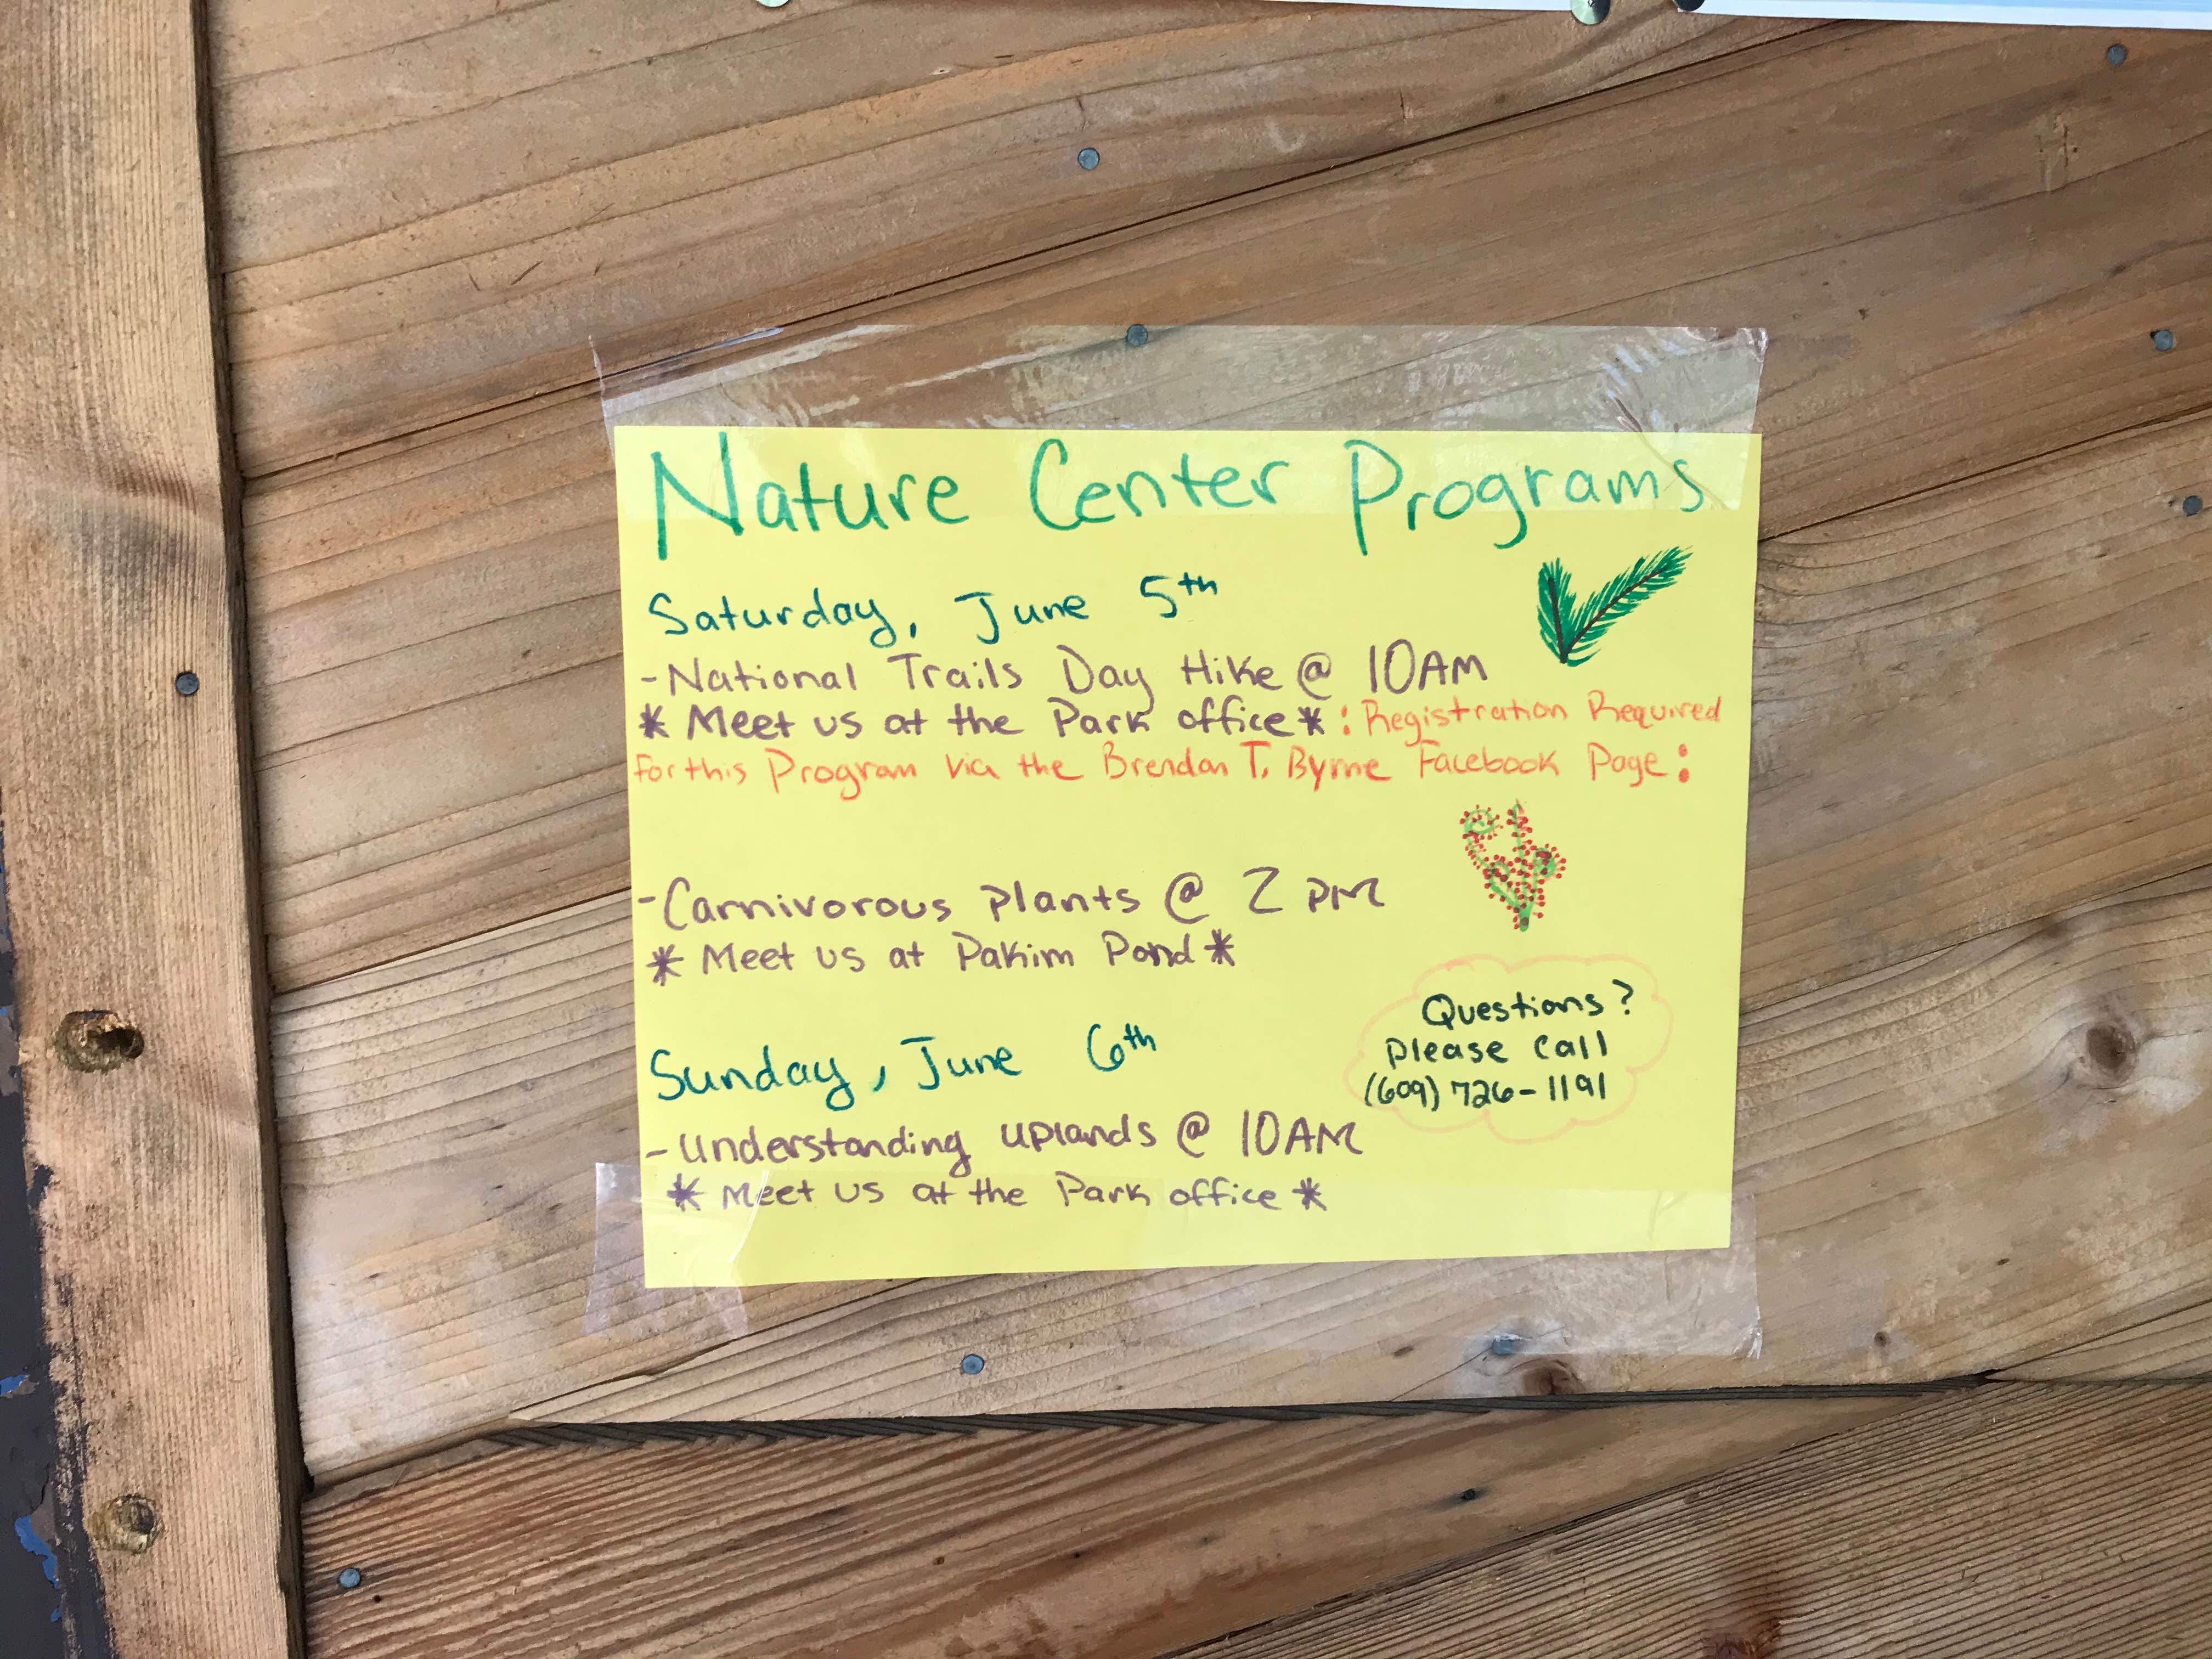 Nature Center Programs
Saturday, June 5th
-National Trails Day Hike @ 10AM
* Meet us at the Park office* : Registration Required
for this Program via the Brendan T. Byrne Facebook Page :
-Carnivorous plants @ 2 PM
* Meet us at Pakim Pond *
Sunday, June 6th
-Understanding uplands @ 10AM
* Meet us at the Park office *
Questions?
please call
(609) 726-1191